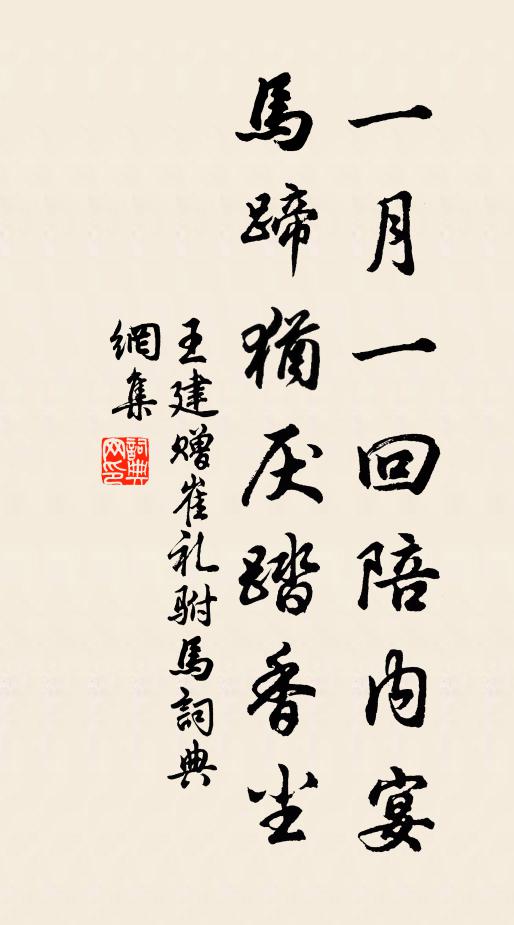 一月一回陪内宴
馬蹄猶厌踏香尘
王建赠崔礼駙馬詞典
網集
詞典
网印